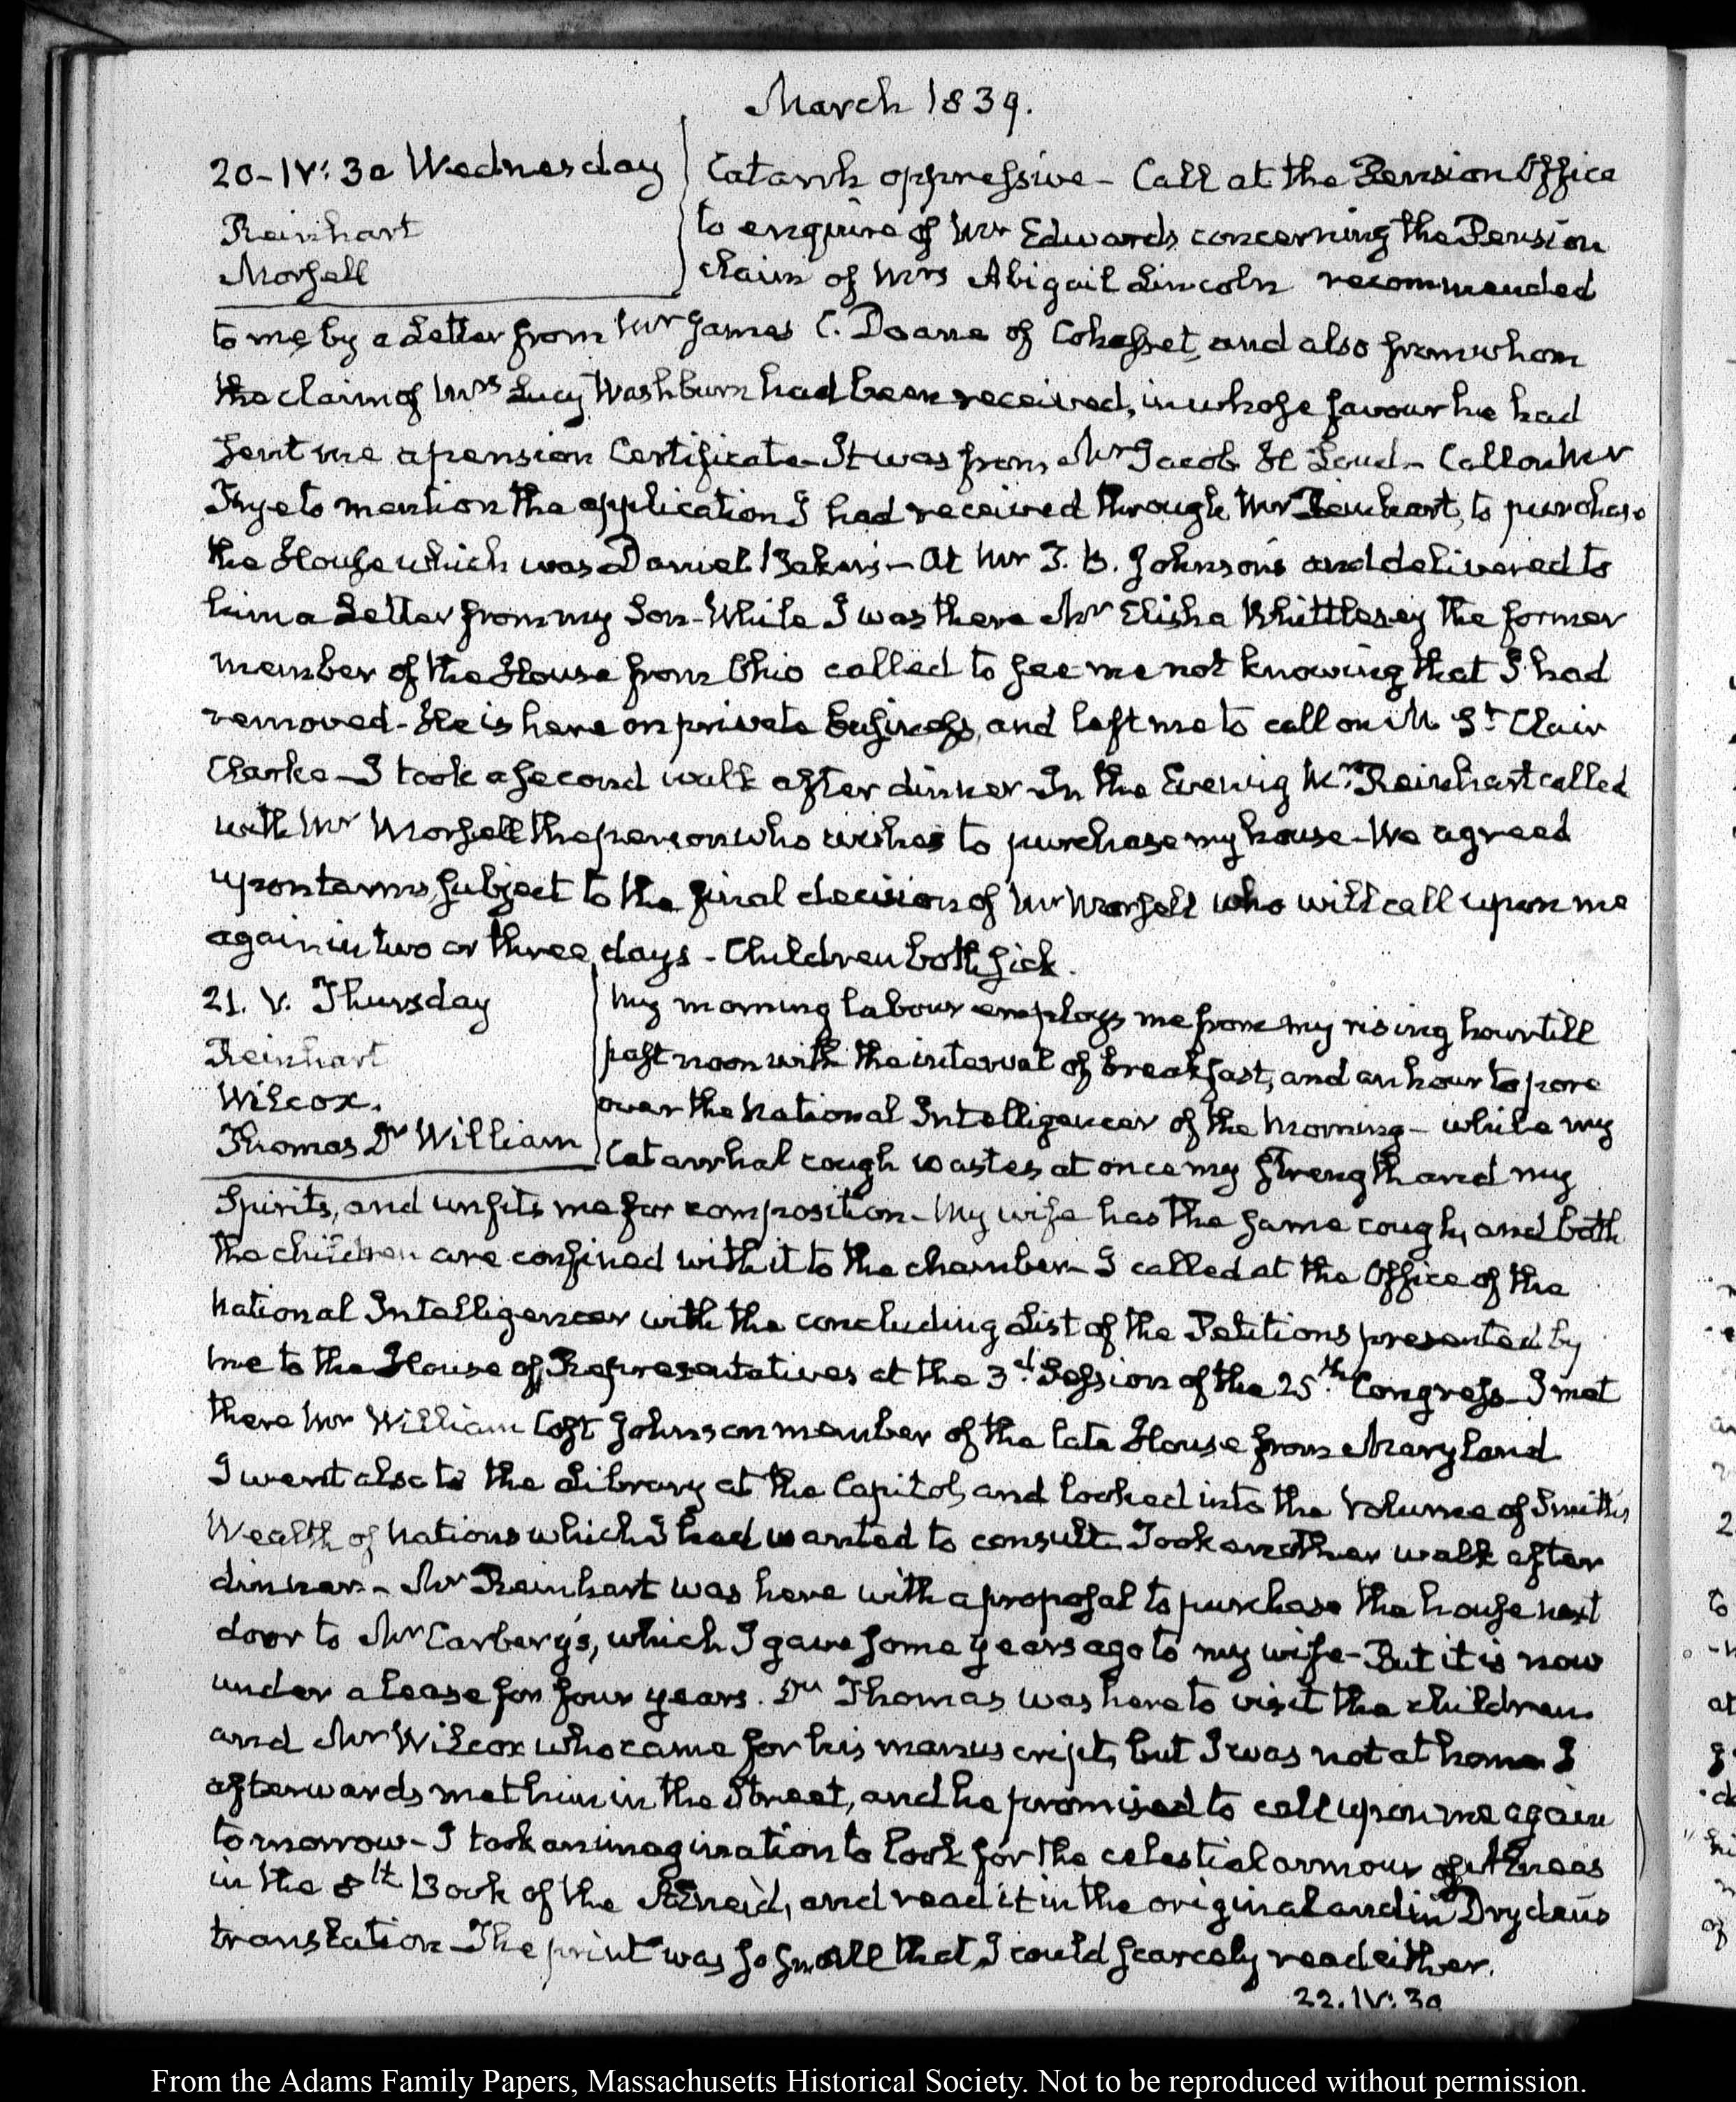 March 1839.
20 - IV: 30 Wednesday
Reinhart
Morsell
Catarrh oppressive - Call at the Pension Office
to enquire of Mr Edwards concerning the Pension
claim of Mrs Abigail Lincoln recommended
to me by a Letter from Mr James C. Doane of Cohasset, and also from whom
the claim of Mrs Lucy Washburn had been received, in whose favour he had
sent me a pension Certificate - It was from Mr Jacob H Loud - Call on Mr
Frye to mention the application I had received through Mr Reinhart, to purchase
the House which was Daniel Baker's - At Mr T. B. Johnson's and delivered to
him a Letter from my Son - While I was there Mr Elisha Whittlesey the former
member of the House from Ohio called to see me not knowing that I had
removed - He is here on private business, and left me to call on M St Clair
Clarke - I took a second walk after dinner - In the Evening Mr Reinhart called
with Mr Morsell the person who wishes to purchase my house - We agreed
upon terms, subject to the final decision of Mr Morsell who will call upon me
again in two or three days - Children both sick.
21. V. Thursday
Reinhart
Wilcox.
Thomas Dr William
My morning labour employs me from my rising hour till
past noon with the interval of breakfast, and an hour to pore
over the National Intelligencer of the Morning - while my
Catarrhal cough wastes at once my strength and my
Spirits, and unfits me for composition - My wife has the same cough, and both
the children are confined with it to the chamber - I called at the Office of the
National Intelligencer with the concluding List of the Petitions presented by
me to the House of Representatives at the 3d Session of the 25th Congress - I met
there Mr William Cost Johnson member of the late House from Maryland
I went also to the Library at the Capitol, and looked into the Volume of Smith's
Wealth of Nations which I had wanted to consult - Took another walk after
dinner - Mr Reinhart was here with a proposal to purchase the house next
door to Mr Carbery's, which I gave some years ago to my wife - But it is now
under a lease for four years. Dr Thomas was here to visit the children
and Mr Wilcox who came for his manuscript, but I was not at home I
afterwards met him in the Street, and he promised to call upon me again
to morrow - I took an imagination to look for the celestial armour of Æneas
in the 8th Book of the Æneid, and read it in the original and in Dryden's
translation - The print was so small that I could scarcely read either.
22. IV: 30
From the Adams Family Papers, Massachusetts Historical Society. Not to be reproduced without permission.